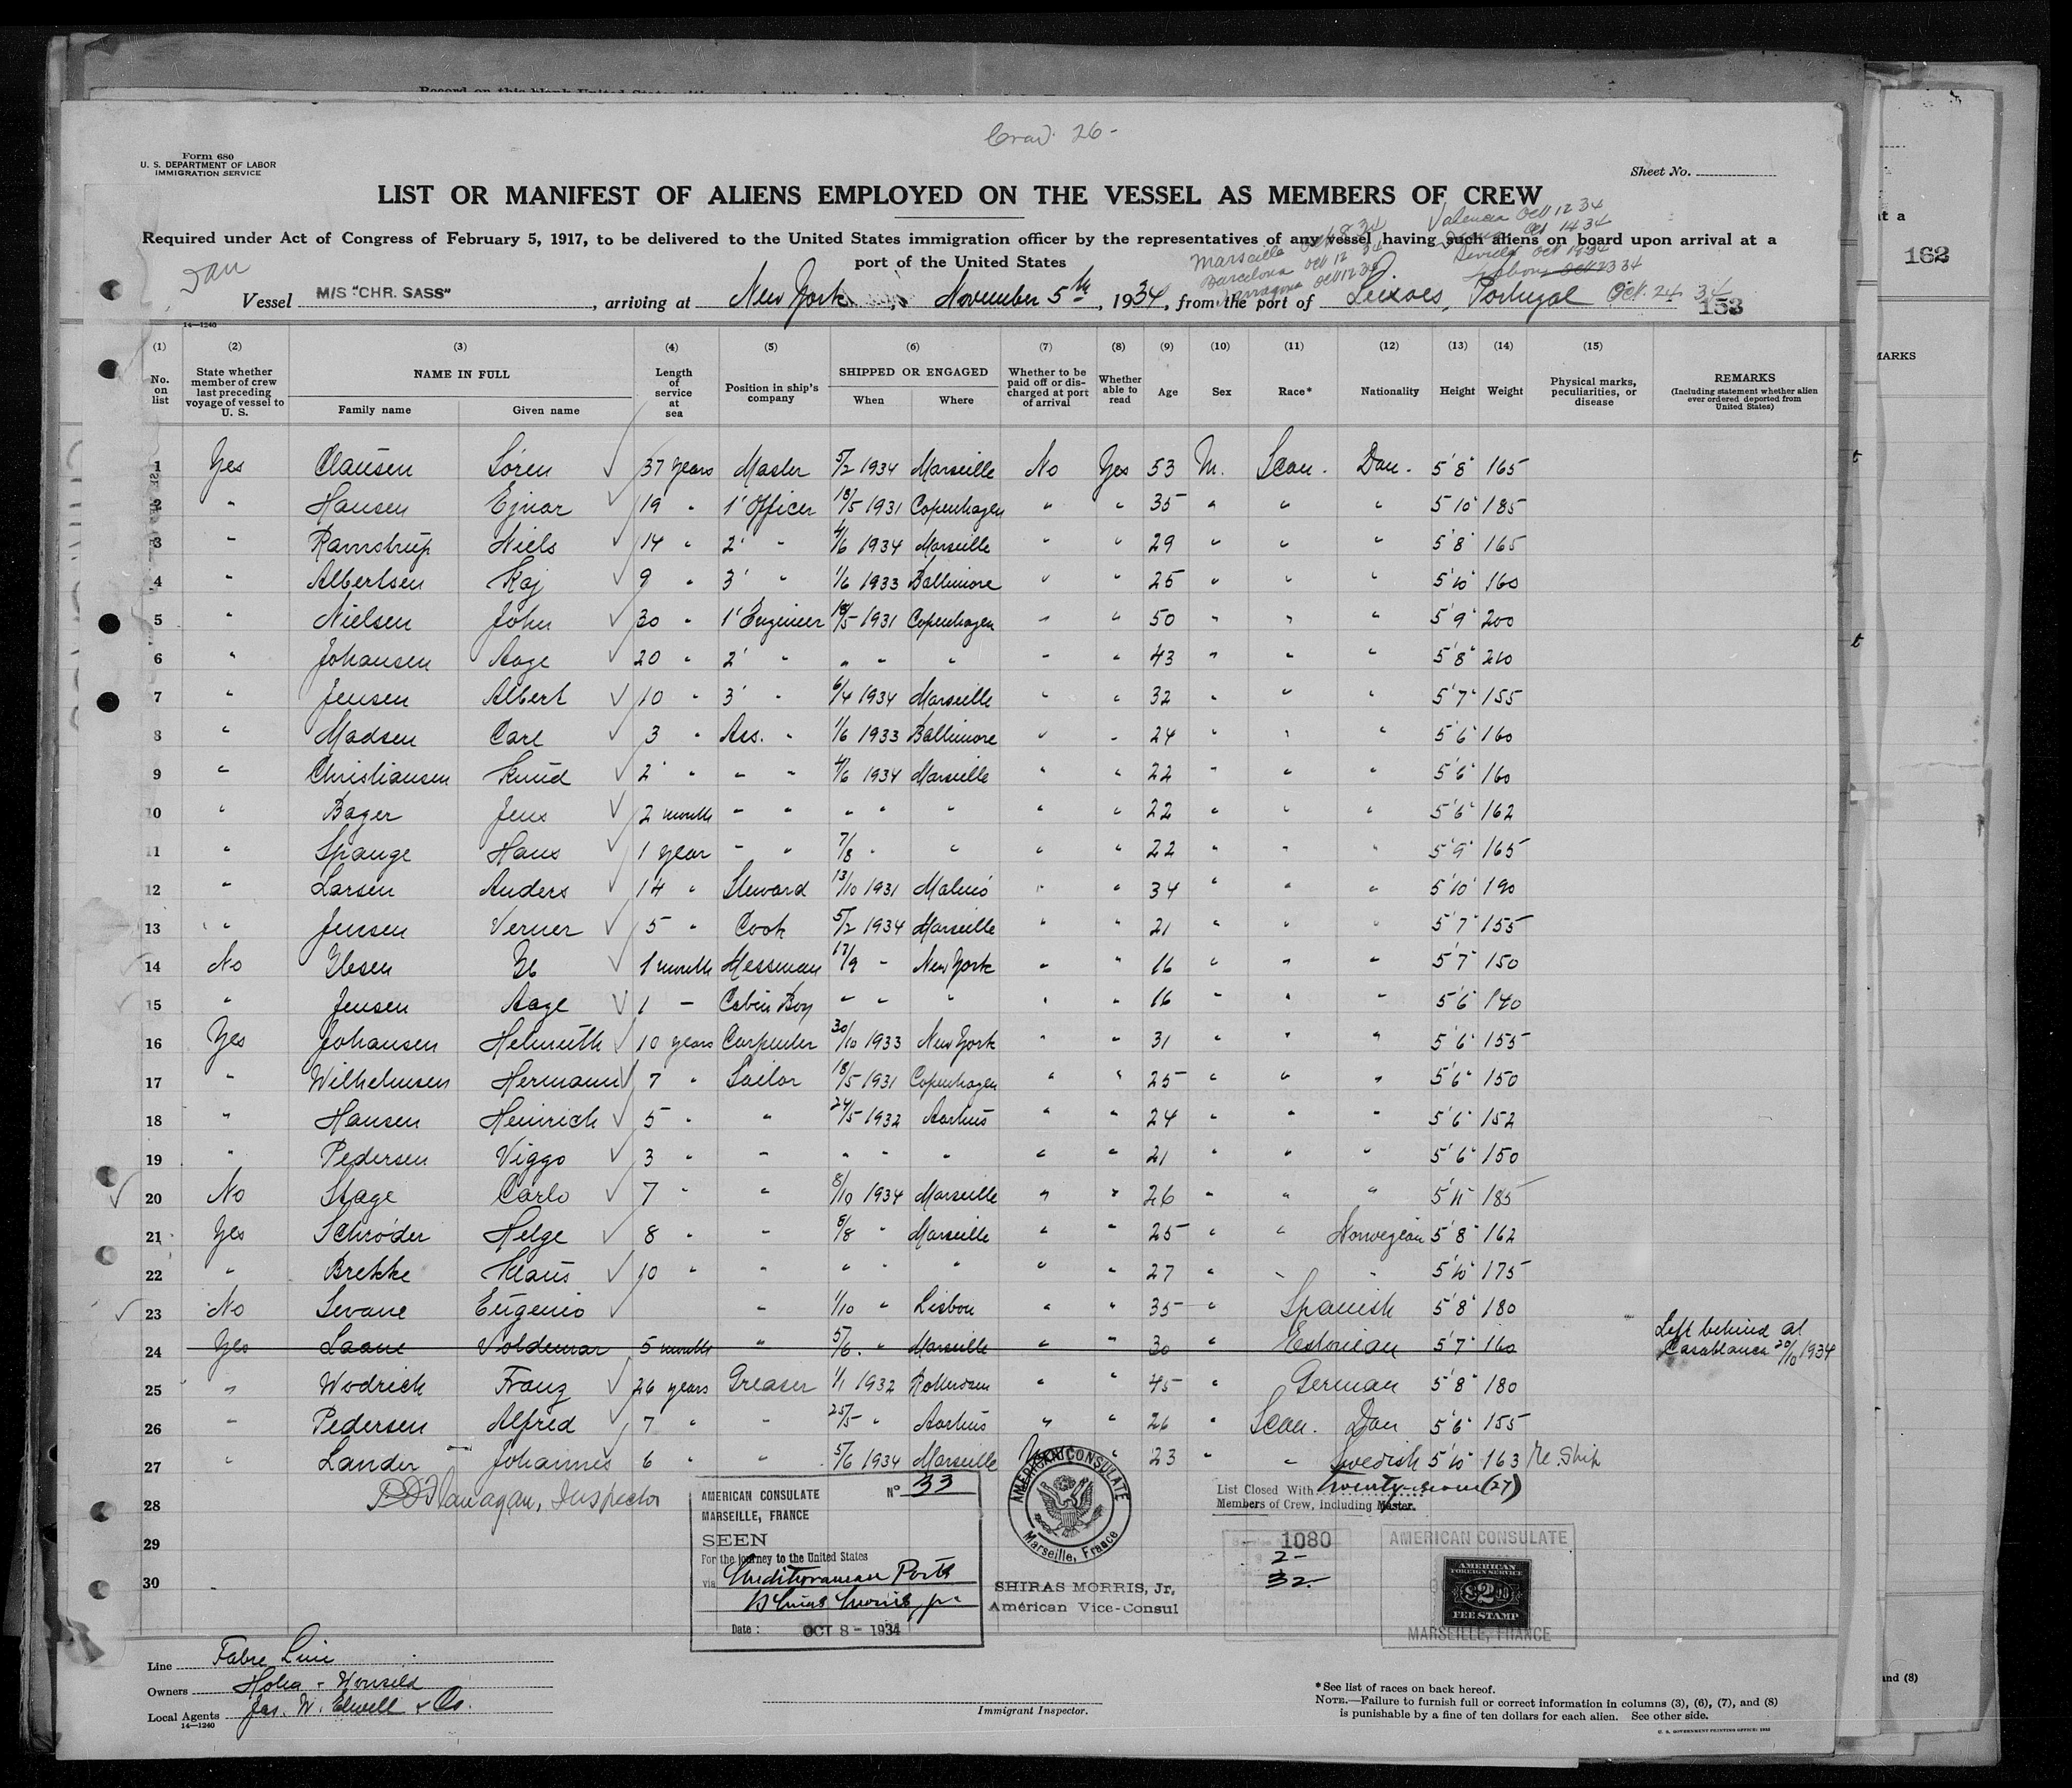 Crew 26-
Form 680
U. S. DEPARTMENT OF LABOR
IMMIGRATION SERVICE
Sheet No.
LIST OR MANIFEST OF ALIENS EMPLOYED ON THE VESSEL AS MEMBERS OF CREW
Valencia Oct 12 34
Marseille Oct 8 34 Oct 14 34
Required under Act of Congress of February 5, 1917, to be delivered to the United States immigration officer by the representatives of any vessel having such aliens on board upon arrival at a
port of the United States
Barcelona Oct 12 34 Seville Oct 19 34
Tarragona Oct 12 34 Lisbon Oct 23 34
Dan
Vessel M/S "CHR. SASS", arriving at New York, November 5th, 1934, from the port of Leixoes, Portugal Oct. 24 34
153
162
14—1240
(1) (2) (3) (4) (5) (6) (7) (8) (9) (10) (11) (12) (13) (14) (15)
No. on list
State whether member of crew last preceding voyage of vessel to U. S.
NAME IN FULL
Family name Given name
Length of service at sea
Position in ship's company
SHIPPED OR ENGAGED
When Where
Whether to be paid off or discharged at port of arrival
Whether able to read
Age Sex Race* Nationality Height Weight
Physical marks, peculiarities, or disease
REMARKS
(Including statement whether alien ever ordered deported from United States)
1 Yes Clausen Sören 37 years Master 5/2 1934 Marseille No Yes 53 M. Scan. Dan. 5'8" 165
2 " Hansen Ejnar 19 " 1' Officer 18/5 1931 Copenhagen " " 35 " " " 5'10" 185
3 " Ramstrup Niels 14 " 2' " 4/6 1934 Marseille " " 29 " " " 5'8" 165
4 " Albertsen Kaj 9 " 3' " 1/6 1933 Baltimore " " 25 " " " 5'10" 160
5 " Nielsen John 30 " 1' Engineer 18/5 1931 Copenhagen " " 50 " " " 5'9" 200
6 " Johansen Aage 20 " 2' " " " " " " 43 " " " 5'8" 210
7 " Jensen Albert 10 " 3' " 6/4 1934 Marseille " " 32 " " " 5'7" 155
8 " Madsen Carl 3 " Ass. " 1/6 1933 Baltimore " " 24 " " " 5'6" 160
9 " Christiansen Knud 2 " " " 4/6 1934 Marseille " " 22 " " " 5'6" 160
10 " Bager Jens 2 month " " " " " " " 22 " " " 5'6" 162
11 " Spange Hans 1 year " " 7/8 " " " " 22 " " " 5'9" 165
12 " Larsen Anders 14 " Steward 13/10 1931 Malmö " " 34 " " " 5'10" 190
13 " Jensen Verner 5 " Cook 5/2 1934 Marseille " " 21 " " " 5'7" 155
14 No Ibsen Ib 1 month Messman 17/9 " New York " " 16 " " " 5'7" 150
15 " Jensen Aage 1 " Cabin Boy " " " " " 16 " " " 5'6" 140
16 Yes Johansen Helmuth 10 years Carpenter 30/10 1933 New York " " 31 " " " 5'6" 155
17 " Wilhelmsen Hermann 7 " Sailor 18/5 1931 Copenhagen " " 25 " " " 5'6" 150
18 " Hansen Heinrich 5 " " 24/5 1932 Aarhus " " 24 " " " 5'6" 152
19 " Pedersen Viggo 3 " " " " " " " 21 " " " 5'6" 150
20 No Stage Carlo 7 " " 8/10 1934 Marseille " " 26 " " " 5'11" 185
21 Yes Schröder Helge 8 " " 8/8 " Marseille " " 25 " " Norwegian 5'8" 162
22 " Brekke Klaus 10 " " " " " " " 27 " " " 5'10" 175
23 No Sevane Eugenio " 1/10 " Lisbon " " 35 " Spanish 5'8" 180
24 Yes Laane Voldemar 5 month " 5/6 " Marseille " " 30 " Estonian 5'7" 160 Left behind at Casablanca 20/10 1934
25 " Wodrich Franz 26 years Greaser 1/1 1932 Rotterdam " " 45 " German 5'8" 180
26 " Pedersen Alfred 7 " " 25/5 " Aarhus " " 26 " Scan. Dan 5'6" 155
27 " Lander Johannes 6 " " 5/6 1934 Marseille " 23 " " Swedish 5'10" 163 Re. Ship
28 Flanagan, Inspector
29
30
AMERICAN CONSULATE No 33
MARSEILLE, FRANCE
SEEN
For the journey to the United States
via Mediterranean Ports
Shiras Morris, jr.
Date: OCT 8 - 1934
AMERICAN CONSULATE
Marseille, France
SHIRAS MORRIS, Jr.
American Vice-Consul
List Closed With Twenty-seven (27)
Members of Crew, Including Master.
1080
2-
32-
AMERICAN CONSULATE
AMERICAN
FOREIGN SERVICE
$2.00
FEE STAMP
MARSEILLE, FRANCE
Line Fabre Line
Owners
Local Agents Jas. W. Elwell & Co.
14—1240
Immigrant Inspector.
*See list of races on back hereof.
NOTE.—Failure to furnish full or correct information in columns (3), (6), (7), and (8)
is punishable by a fine of ten dollars for each alien. See other side.